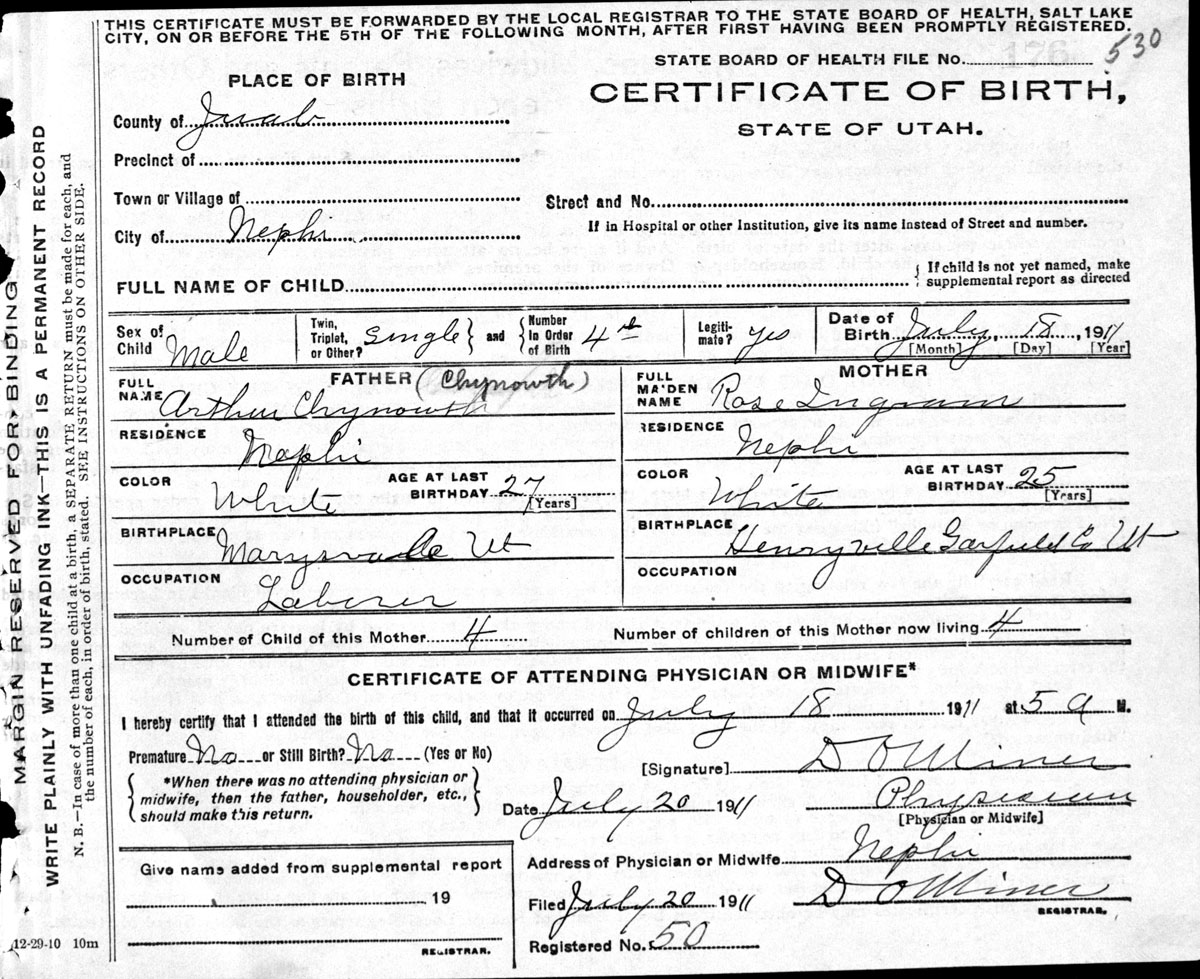 THIS CERTIFICATE MUST BE FORWARDED BY THE LOCAL REGISTRAR TO THE STATE BOARD OF HEALTH, SALT LAKE
CITY, ON OR BEFORE THE 5TH OF THE FOLLOWING MONTH, AFTER FIRST HAVING BEEN PROMPTLY REGISTERED.
530
STATE BOARD OF HEALTH FILE No.
PLACE OF BIRTH
CERTIFICATE OF BIRTH,
STATE OF UTAH.
County of Juab
Precinct of
Town or Village of
Street and No.
City of Nephi
If in Hospital or other Institution, give its name instead of Street and number.
FULL NAME OF CHILD
If child is not yet named, make
supplemental report as directed
Sex of Child Male
Twin, Triplet, or Other? Single and Number In Order of Birth 4th
Legiti-mate? yes
Date of Birth July 18, 1911
[Month] [Day] [Year]
FATHER (Chynowth)
FULL NAME Arthur Chynowth
RESIDENCE Nephi
COLOR White
AGE AT LAST BIRTHDAY 27 [Years]
BIRTHPLACE Marysvale Ut
OCCUPATION Laborer
MOTHER
FULL MAIDEN NAME Rose Ingram
RESIDENCE Nephi
COLOR White
AGE AT LAST BIRTHDAY 25 [Years]
BIRTHPLACE Henryville Garfield Co Ut
OCCUPATION
Number of Child of this Mother 4
Number of children of this Mother now living 4
CERTIFICATE OF ATTENDING PHYSICIAN OR MIDWIFE*
I hereby certify that I attended the birth of this child, and that it occurred on July 18 1911 at 5 a M.
Premature No or Still Birth? No (Yes or No)
*When there was no attending physician or
midwife, then the father, householder, etc.,
should make this return.
[Signature] D O Miner
Date July 20 1911
Physician
[Physician or Midwife]
Give name added from supplemental report
19
REGISTRAR.
Address of Physician or Midwife Nephi
Filed July 20 1911 D O Miner
REGISTRAR.
Registered No. 50
12-29-10 10m
MARGIN RESERVED FOR BINDING.
WRITE PLAINLY WITH UNFADING INK—THIS IS A PERMANENT RECORD
N. B.—In case of more than one child at a birth, a SEPARATE RETURN must be made for each, and
the number of each, in order of birth, stated. SEE INSTRUCTIONS ON OTHER SIDE.